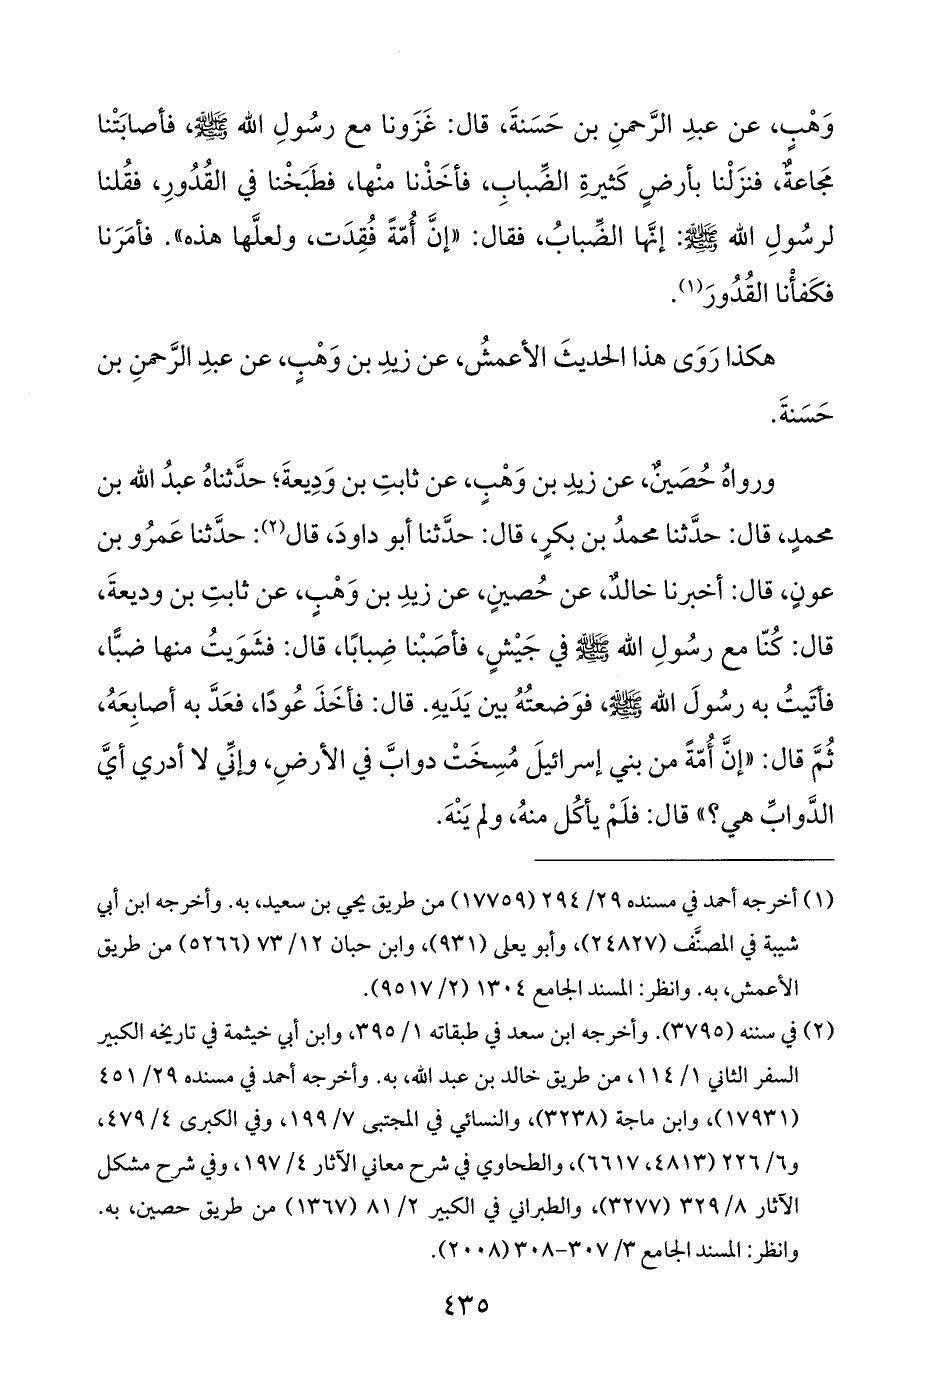 وَهْبٍ، عن عبدِ الرَّحمنِ بن حَسَنةَ، قال: غَزَونا مع رسُولِ الله ﷺ، فأصابَتْنا
مجَاعةٌ، فنزَلْنا بأرضٍ كَثيرةِ الضِّبابِ، فأخَذْنا منْها، فطَبَخْنا في القُدُورِ، فقُلنا
لرسُولِ الله ﷺ: إنَّها الضِّبابُ، فقال: «إنَّ أُمّةً فُقِدَت، ولعلَّها هذه». فأمَرَنا
فكَفأْنا القُدُورَ(١).
هكذا رَوَى هذا الحديثَ الأعمشُ، عن زيدِ بن وَهْبٍ، عن عبدِ الرَّحمنِ بن
حَسَنةَ.
ورواهُ حُصَينٌ، عن زيدِ بن وَهْبٍ، عن ثابتِ بن وَدِيعةَ؛ حدَّثناهُ عبدُ الله بن
محمدٍ، قال: حدَّثنا محمدُ بن بكرٍ، قال: حدَّثنا أبو داودَ، قال(٢): حدَّثنا عَمرُو بن
عونٍ، قال: أخبرنا خالدٌ، عن حُصينٍ، عن زيدِ بن وَهْبٍ، عن ثابتِ بن وديعةَ،
قال: كُنّا مع رسُولِ الله ﷺ في جَيْشٍ، فأصَبْنا ضِبابًا، قال: فشَوَيتُ منها ضبًّا،
فأتَيتُ به رسُولَ الله ﷺ، فوَضعتُهُ بين يَدَيهِ. قال: فأخَذَ عُودًا، فعَدَّ به أصابِعَهُ،
ثُمَّ قال: «إنَّ أُمّةً من بني إسرائيلَ مُسِخَتْ دوابَّ في الأرضِ، وإنِّي لا أدري أيَّ
الدَّوابِّ هي؟» قال: فلَمْ يأكُل منهُ، ولم يَنْهَ.
(١) أخرجه أحمد في مسنده ٢٩/ ٢٩٤ (١٧٧٥٩) من طريق يحيى بن سعيد، به. وأخرجه ابن أبي
شيبة في المصنَّف (٢٤٨٢٧)، وأبو يعلى (٩٣١)، وابن حبان ١٢/ ٧٣ (٥٢٦٦) من طريق
الأعمش، به. وانظر: المسند الجامع ١٣٠٤ (٢/ ٩٥١٧).
(٢) في سننه (٣٧٩٥). وأخرجه ابن سعد في طبقاته ١/ ٣٩٥، وابن أبي خيثمة في تاريخه الكبير
السفر الثاني ١/ ١١٤، من طريق خالد بن عبد الله، به. وأخرجه أحمد في مسنده ٢٩/ ٤٥١
(١٧٩٣١)، وابن ماجة (٣٢٣٨)، والنسائي في المجتبى ٧/ ١٩٩، وفي الكبرى ٤/ ٤٧٩،
و٦/ ٢٢٦ (٤٨١٣، ٦٦١٧)، والطحاوي في شرح معاني الآثار ٤/ ١٩٧، وفي شرح مشكل
الآثار ٨/ ٣٢٩ (٣٢٧٧)، والطبراني في الكبير ٢/ ٨١ (١٣٦٧) من طريق حصين، به.
وانظر: المسند الجامع ٣/ ٣٠٧-٣٠٨ (٢٠٠٨).
٤٣٥